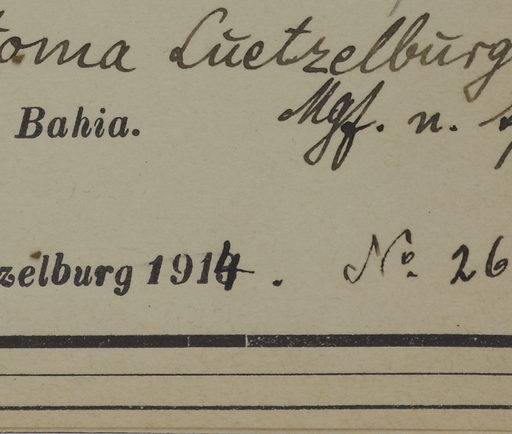 toma Luetzelburg
Bahia. Mgf. n.
zelburg 1914. No. 26